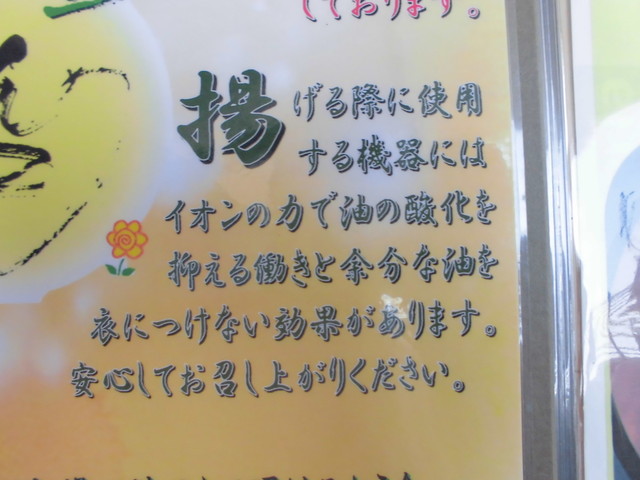 しております。
揚げる際に使用
する機器には
イオンの力で油の酸化を
抑える働きと余分な油を
衣につけない効果があります。
安心してお召し上がりください。